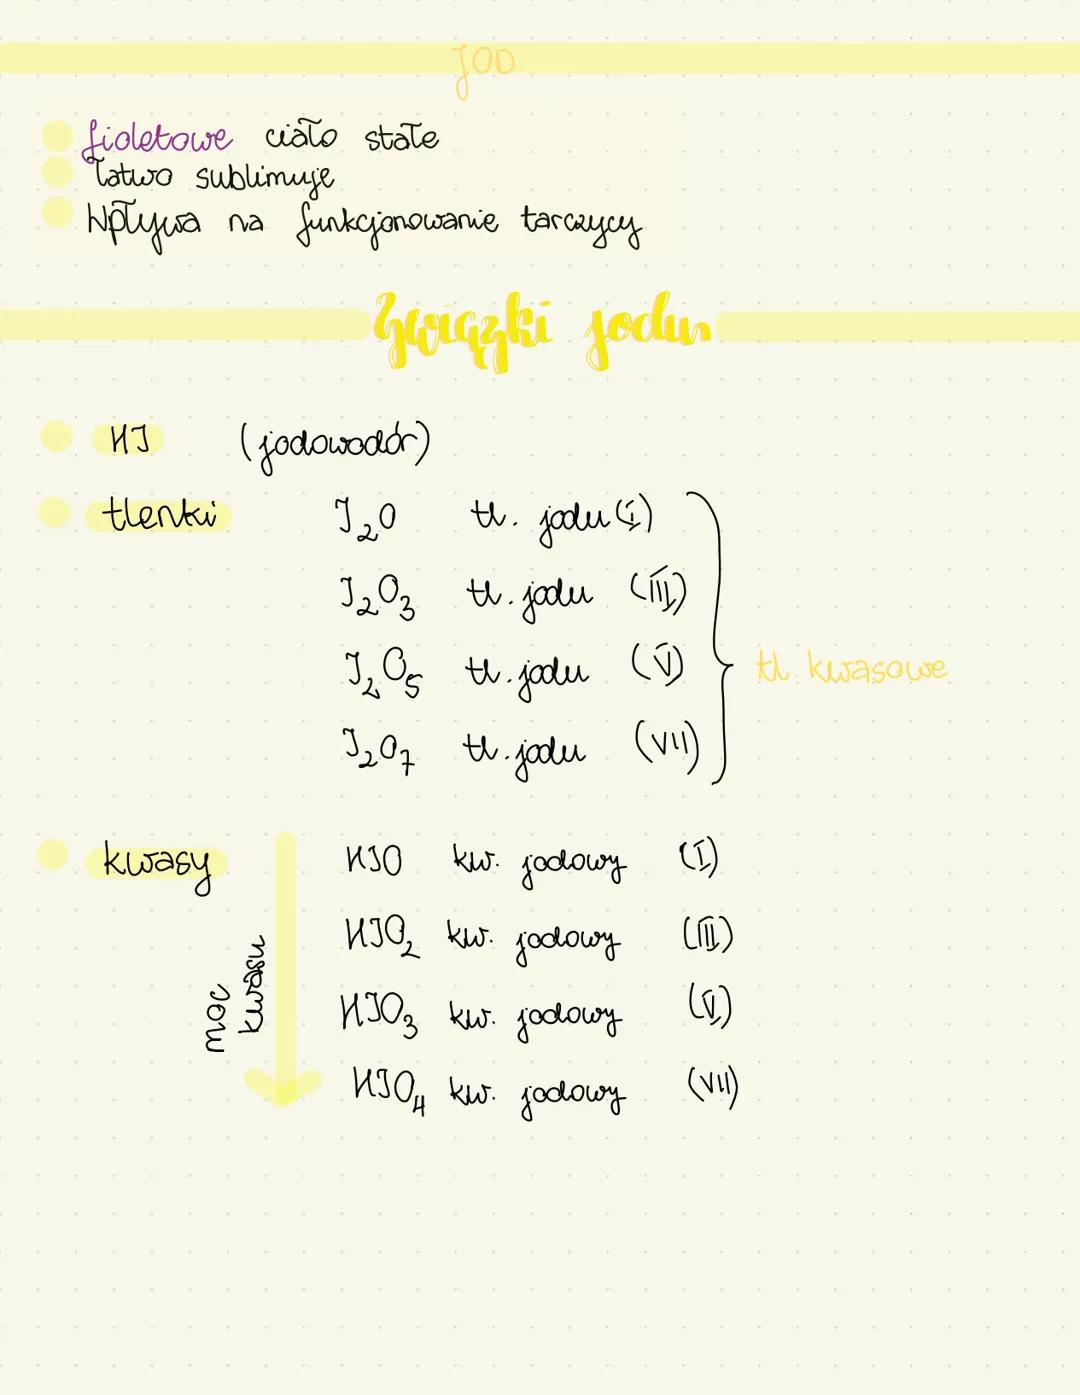 JOD
fioletowe ciało stałe
łatwo sublimuje
Wpływa na funkcjonowanie tarczycy
Związki jodu
HJ (jodowodór)
tlenki J₂O tl. jodu (I)
J₂O₃ tl. jodu (III)
J₂O₅ tl. jodu (V)
tl. kwasowe
J₂O₇ tl. jodu (VII)
kwasy HJO kw. jodowy (I)
HJO₂ kw. jodowy (III)
moc kwasu
HJO₃ kw. jodowy (V)
HJO₄ kw. jodowy (VII)